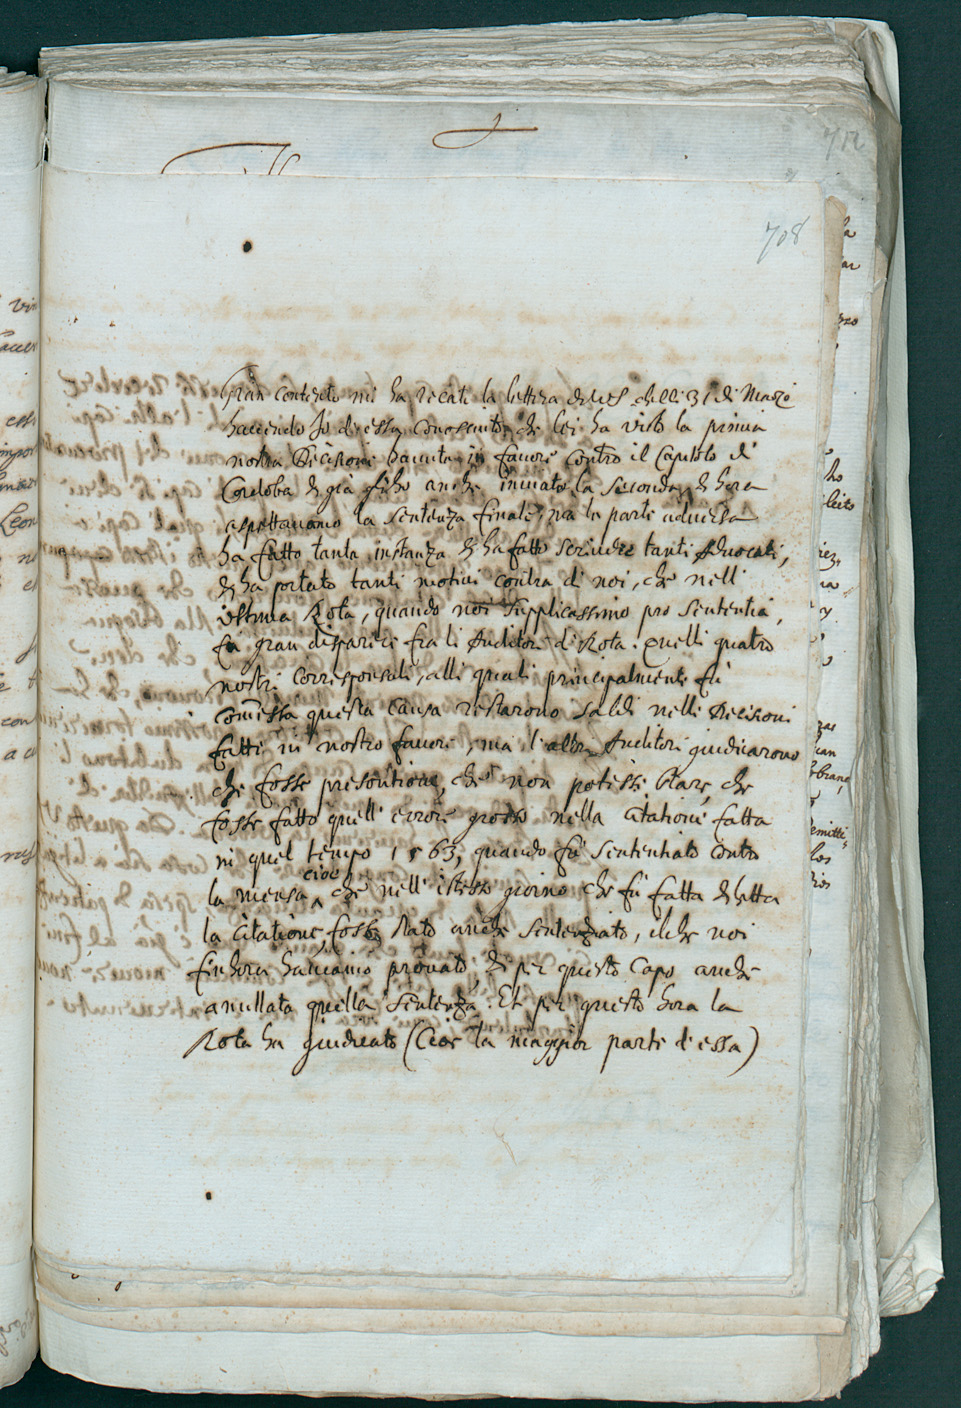 712
708
Gran contento mi ha recati la lettera di V.S. delli 31 di Marzo
havendo Io di essa conosciuto che lei ha visto la prima
nostra Decisione havuta in favore contro il Capitolo di
Cordoba et già gl'ho anche inviato la seconda, et hora
aspettavamo la sentenza finale, ma la parte adversa
ha fatto tanta instanza et ha fatto scrivere tanti Advocati,
et ha portato tanti motivi contra di noi, che nell'
ultima Rota, quando noi supplicassimo pro sententia,
fù gran disparere fra li Auditori di Rota. Quelli quatro
nostri Corresponsali, alli quali principalmente fù
comessa questa causa restarono saldi nelli Decisioni
fatti in nostro favore, ma l'altri Auditori giudicarono
che fosse presontione, che non potesse stare, che
fosse fatto quell' errore grosso nella citatione fatta
in quel tempo 1563, quando fù sententiato contro
la mensa cioè che nell' istesso giorno che fù fatta detta
la citatione, fosse stato anche sentenziato, il che noi
finhora havevamo provato, et per questo capo anche
anullata quella sentenza. Et per questo hora la
Rota ha giudicato (Cioè la maggior parte d'essa)